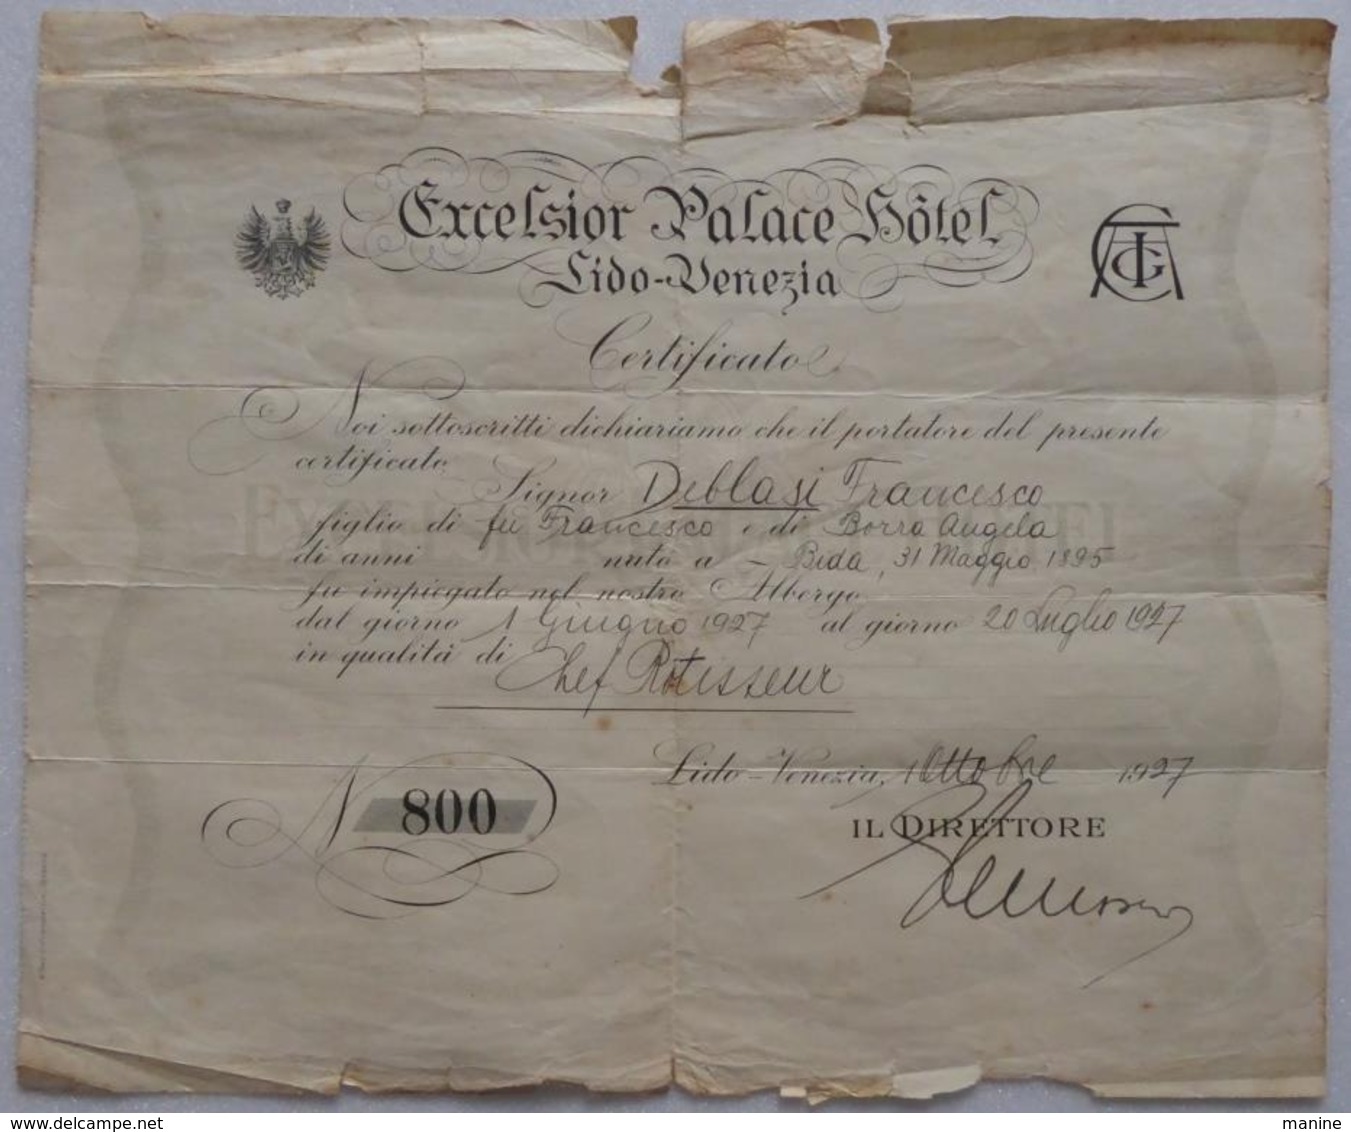 Excelsior Palace Hôtel
Lido-Venezia
CIGA
Certificato
Noi sottoscritti dichiariamo che il portatore del presente
certificato
Signor Deblasi Francesco
figlio di fu Francesco e di Borra Angela
di anni nato a - Breda, 31 Maggio 1895
fu impiegato nel nostro Albergo
dal giorno 1 Giugno 1927 al giorno 20 Luglio 1927
in qualità di Chef Rotisseur
Lido-Venezia, 1 Ottobre 1927
N 800
IL DIRETTORE
delcampe.net
manine